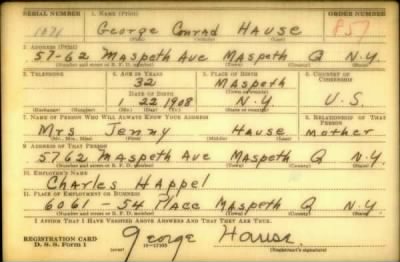 SERIAL NUMBER 1. NAME (Print) ORDER NUMBER
1071 George Conrad Hause 857
(First) (Middle) (Last)
2. ADDRESS (Print)
57-62 Maspeth Ave Maspeth Q N.Y.
(Number and street or R. F. D. number) (Town) (County) (State)
3. TELEPHONE 4. AGE IN YEARS 5. PLACE OF BIRTH 6. COUNTRY OF CITIZENSHIP
32 Maspeth
DATE OF BIRTH (Town or county)
1 22 1908 N.Y. U.S.
(Exchange) (Number) (Mo.) (Day) (Yr.) (State or country)
7. NAME OF PERSON WHO WILL ALWAYS KNOW YOUR ADDRESS 8. RELATIONSHIP OF THAT PERSON
Mrs Jenny Hause Mother
(Mr., Mrs., Miss) (First) (Middle) (Last)
9. ADDRESS OF THAT PERSON
5762 Maspeth Ave Maspeth Q N.Y.
(Number and street or R. F. D. number) (Town) (County) (State)
10. EMPLOYER'S NAME
Charles Happel
11. PLACE OF EMPLOYMENT OR BUSINESS
6061-54 Place Maspeth Q N.Y.
(Number and street or R. F. D. number) (Town) (County) (State)
I AFFIRM THAT I HAVE VERIFIED ABOVE ANSWERS AND THAT THEY ARE TRUE.
REGISTRATION CARD
D. S. S. Form 1 George Hause
(Registrant's signature)